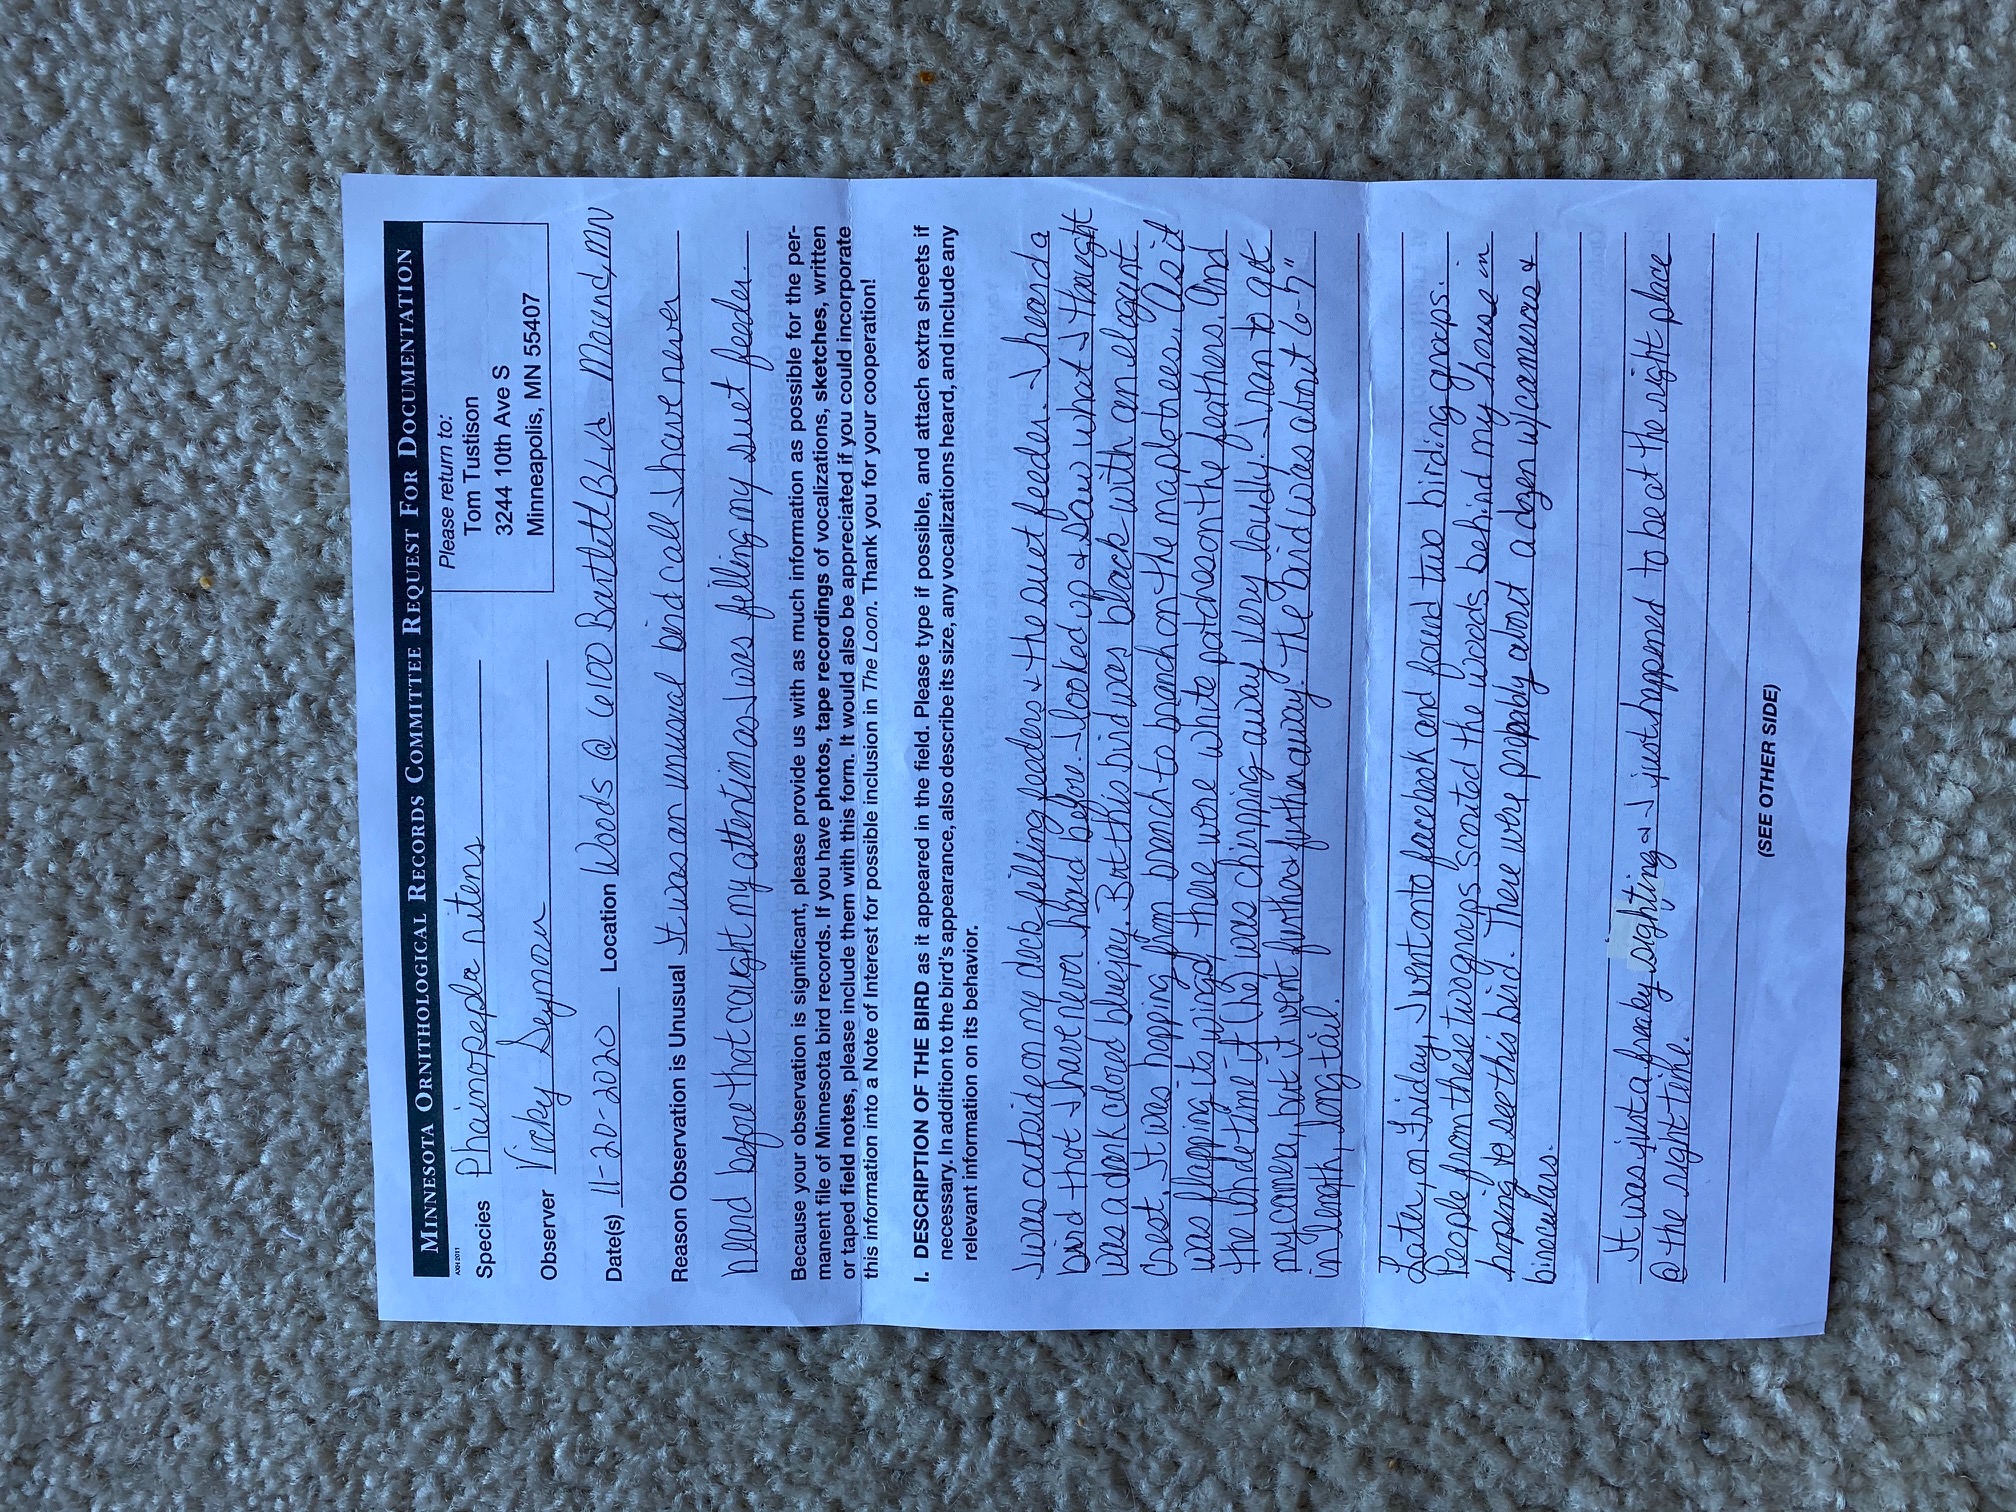 MINNESOTA ORNITHOLOGICAL RECORDS COMMITTEE REQUEST FOR DOCUMENTATION
AXH 2011
Please return to:
Tom Tustison
3244 10th Ave S
Minneapolis, MN 55407
Species Phainopepla nitens
Observer Vicky Seymour
Date(s) 11-20-2020 Location Woods @ 6100 Bartlett Blvd Mound, MN
Reason Observation is Unusual It was an unusual bird call I have never
heard before that caught my attention as I was filling my suet feeder.
Because your observation is significant, please provide us with as much information as possible for the per-
manent file of Minnesota bird records. If you have photos, tape recordings of vocalizations, sketches, written
or taped field notes, please include them with this form. It would also be appreciated if you could incorporate
this information into a Note of Interest for possible inclusion in The Loon. Thank you for your cooperation!
I. DESCRIPTION OF THE BIRD as it appeared in the field. Please type if possible, and attach extra sheets if
necessary. In addition to the bird's appearance, also describe its size, any vocalizations heard, and include any
relevant information on its behavior.
I was outside on my deck filling feeders + the suet feeder. I heard a
bird that I have never heard before. I looked up + saw what I thought
was a dark colored bluejay. But this bird was black with an elegant
crest. It was hopping from branch to branch on the maple trees. As it
was flapping its wings there were white patches on the feathers. And
the entire time it (he) was chirping away very loudly. I ran to get
my camera, but it went further + further away. The bird was about 6-5"
in length, long tail.
Later, on Friday, I went onto facebook and found two birding groups.
People from these two groups scouted the woods behind my house in
hoping to see this bird. There were propably about a dozen w/cameras +
binoculars.
It was just a freaky sighting + I just happened to be at the right place
@ the right time.
(SEE OTHER SIDE)